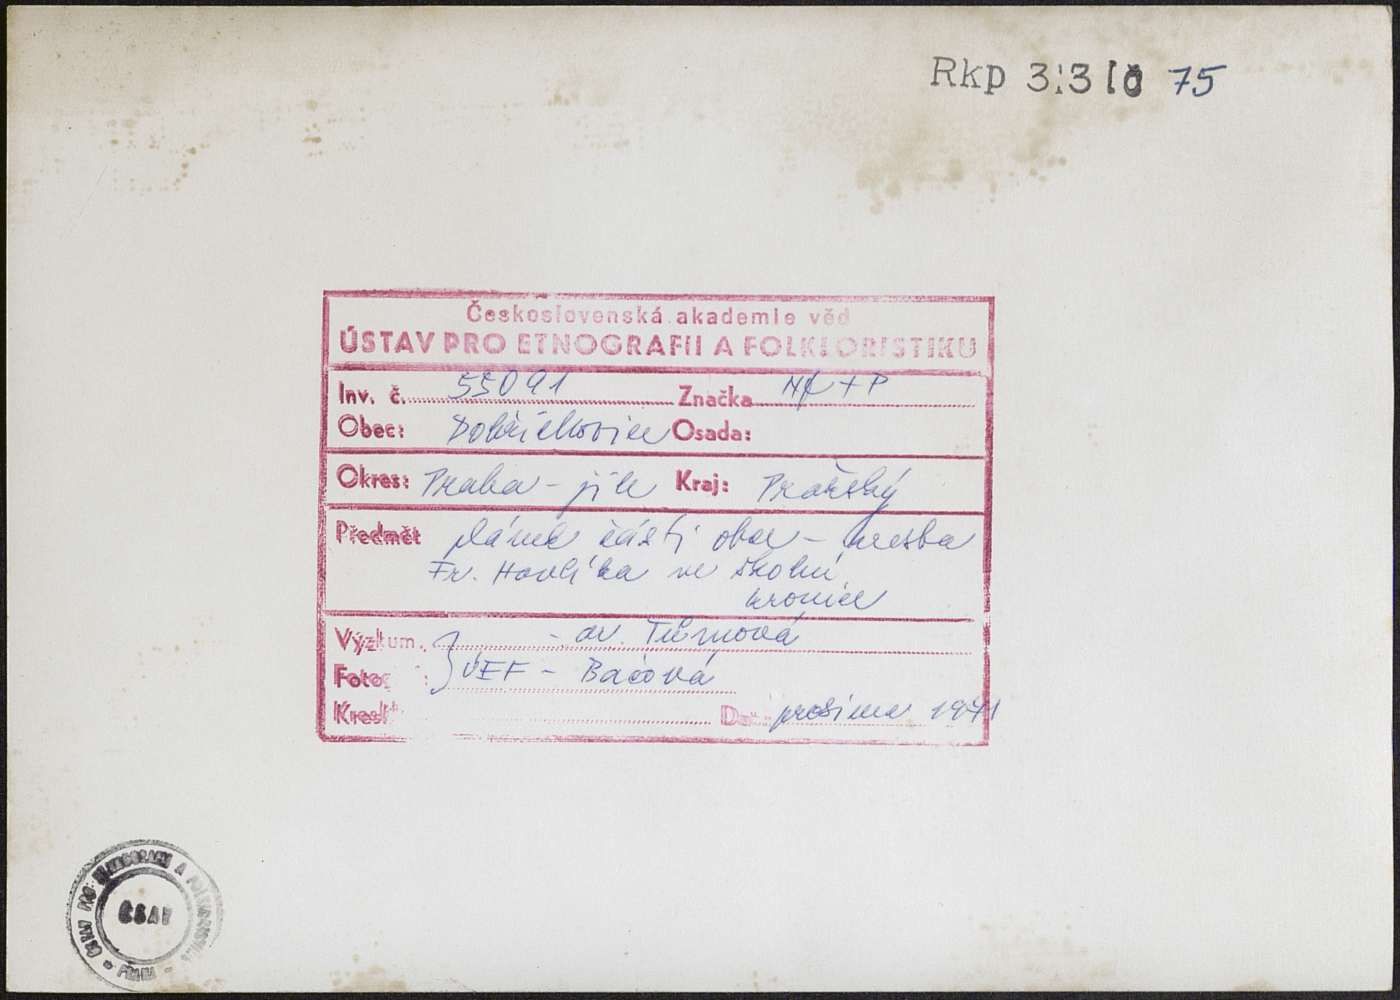 Rkp 3 3 10 75
Československá akademie věd
ÚSTAV PRO ETNOGRAFII A FOLKLORISTIKU
Inv. č. 55091 Značka
Obec: Dobřichovice Osada:
Okres: Praha - jih Kraj: Pražský
Předmět plánek části obce - kresba
Fr. Havlíka ve školní
kronice
Výzkum. - dr. Tůmová
Foto: ÚEF - Bačová
Kreslil Dat.: prosinec 1971
ÚSTAV PRO ETNOGRAFII A FOLKLORISTIKU
ČSAV
- PRAHA -